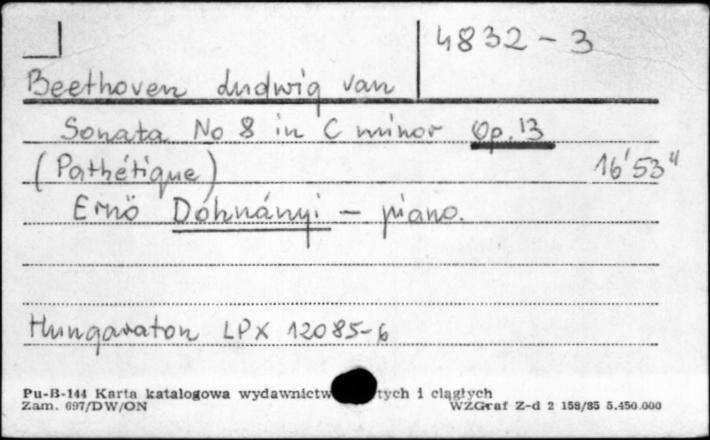 4832 - 3
Beethoven Ludwig van
Sonata No 8 in C minor Op. 13
(Pathétique) 16'53"
Ernö Dóhnányi - piano.
Hungaraton LPX 12085-6
Pu-B-144 Karta katalogowa wydawnictw tych i ciągłych
Zam. 697/DW/ON WZGraf Z-d 2 158/85 5.450.000